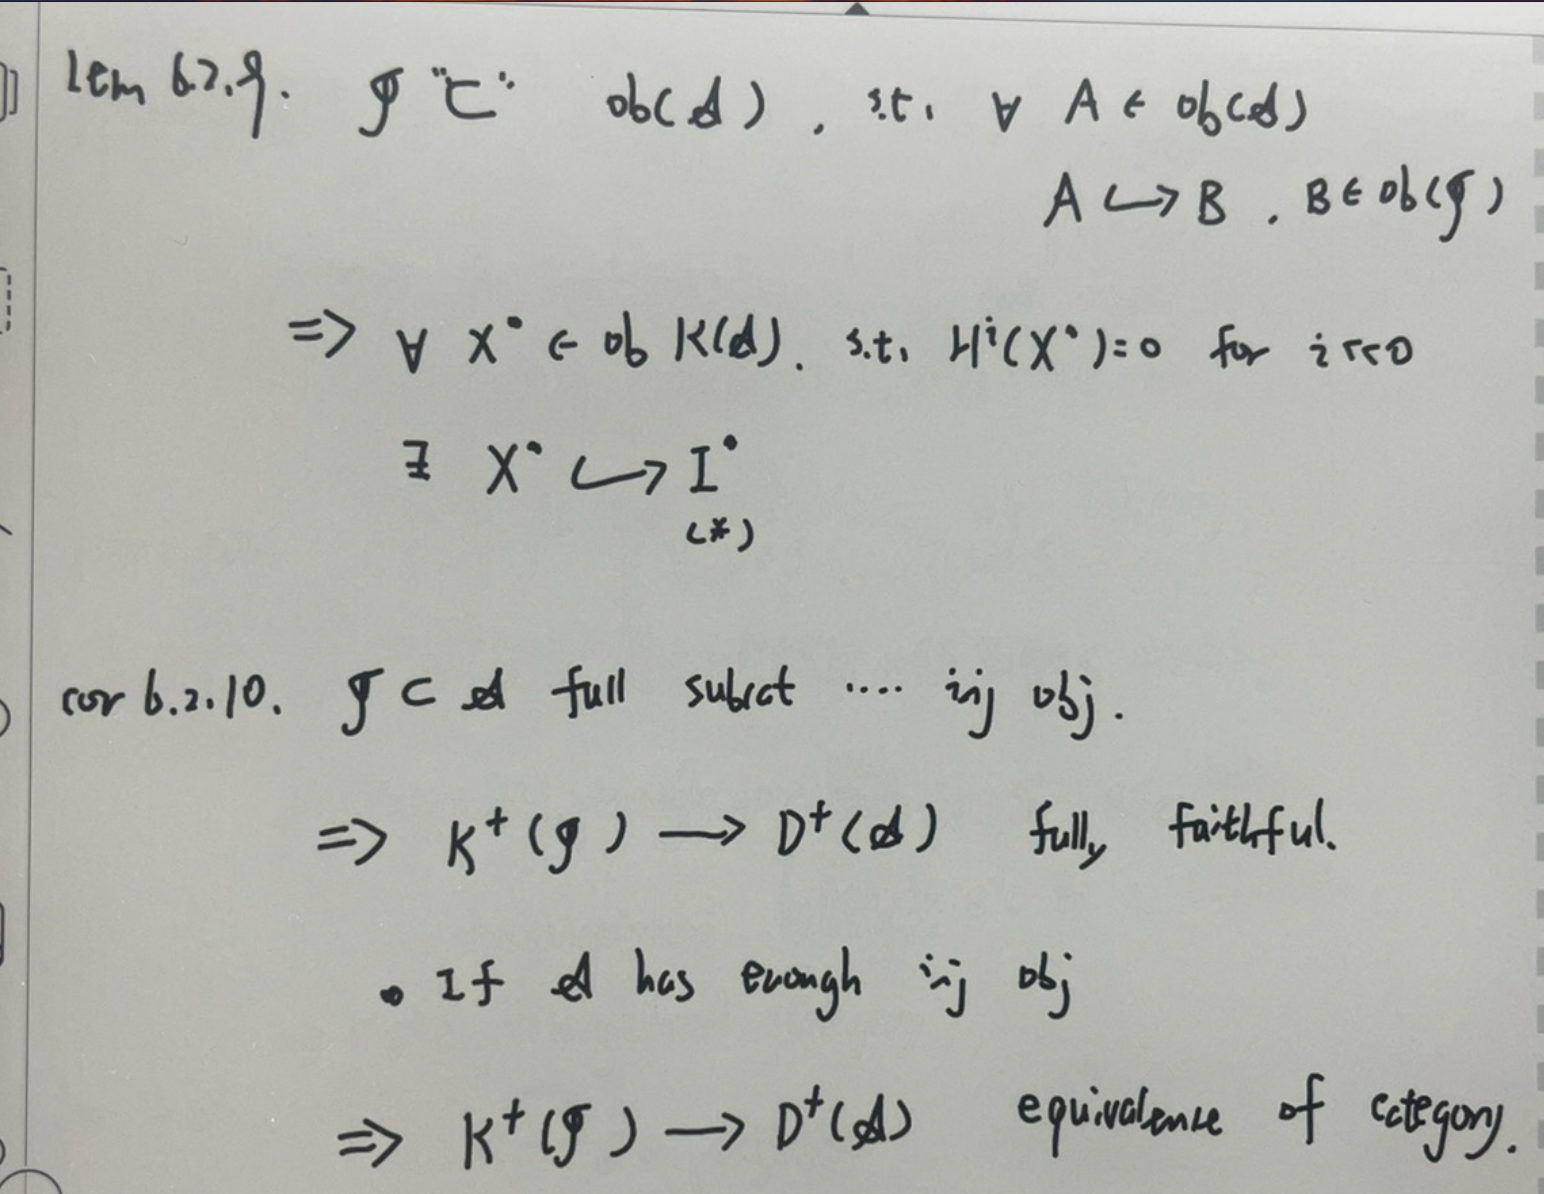 lem 6.2.9. 𝓘 "⊂" ob(𝒜), s.t. ∀ A ∈ ob(𝒜)
A ↪ B, B ∈ ob(𝓘)
⇒ ∀ X• ∈ ob K(𝒜). s.t. Hⁱ(X•)=0 for i<<0
∃ X• ↪ I•
(*)
cor 6.2.10. 𝓘 ⊂ 𝒜 full subcat .... inj obj.
⇒ K⁺(𝓘) → D⁺(𝒜) fully faithful.
• If 𝒜 has enough inj obj
⇒ K⁺(𝓘) → D⁺(𝒜) equivalence of category.